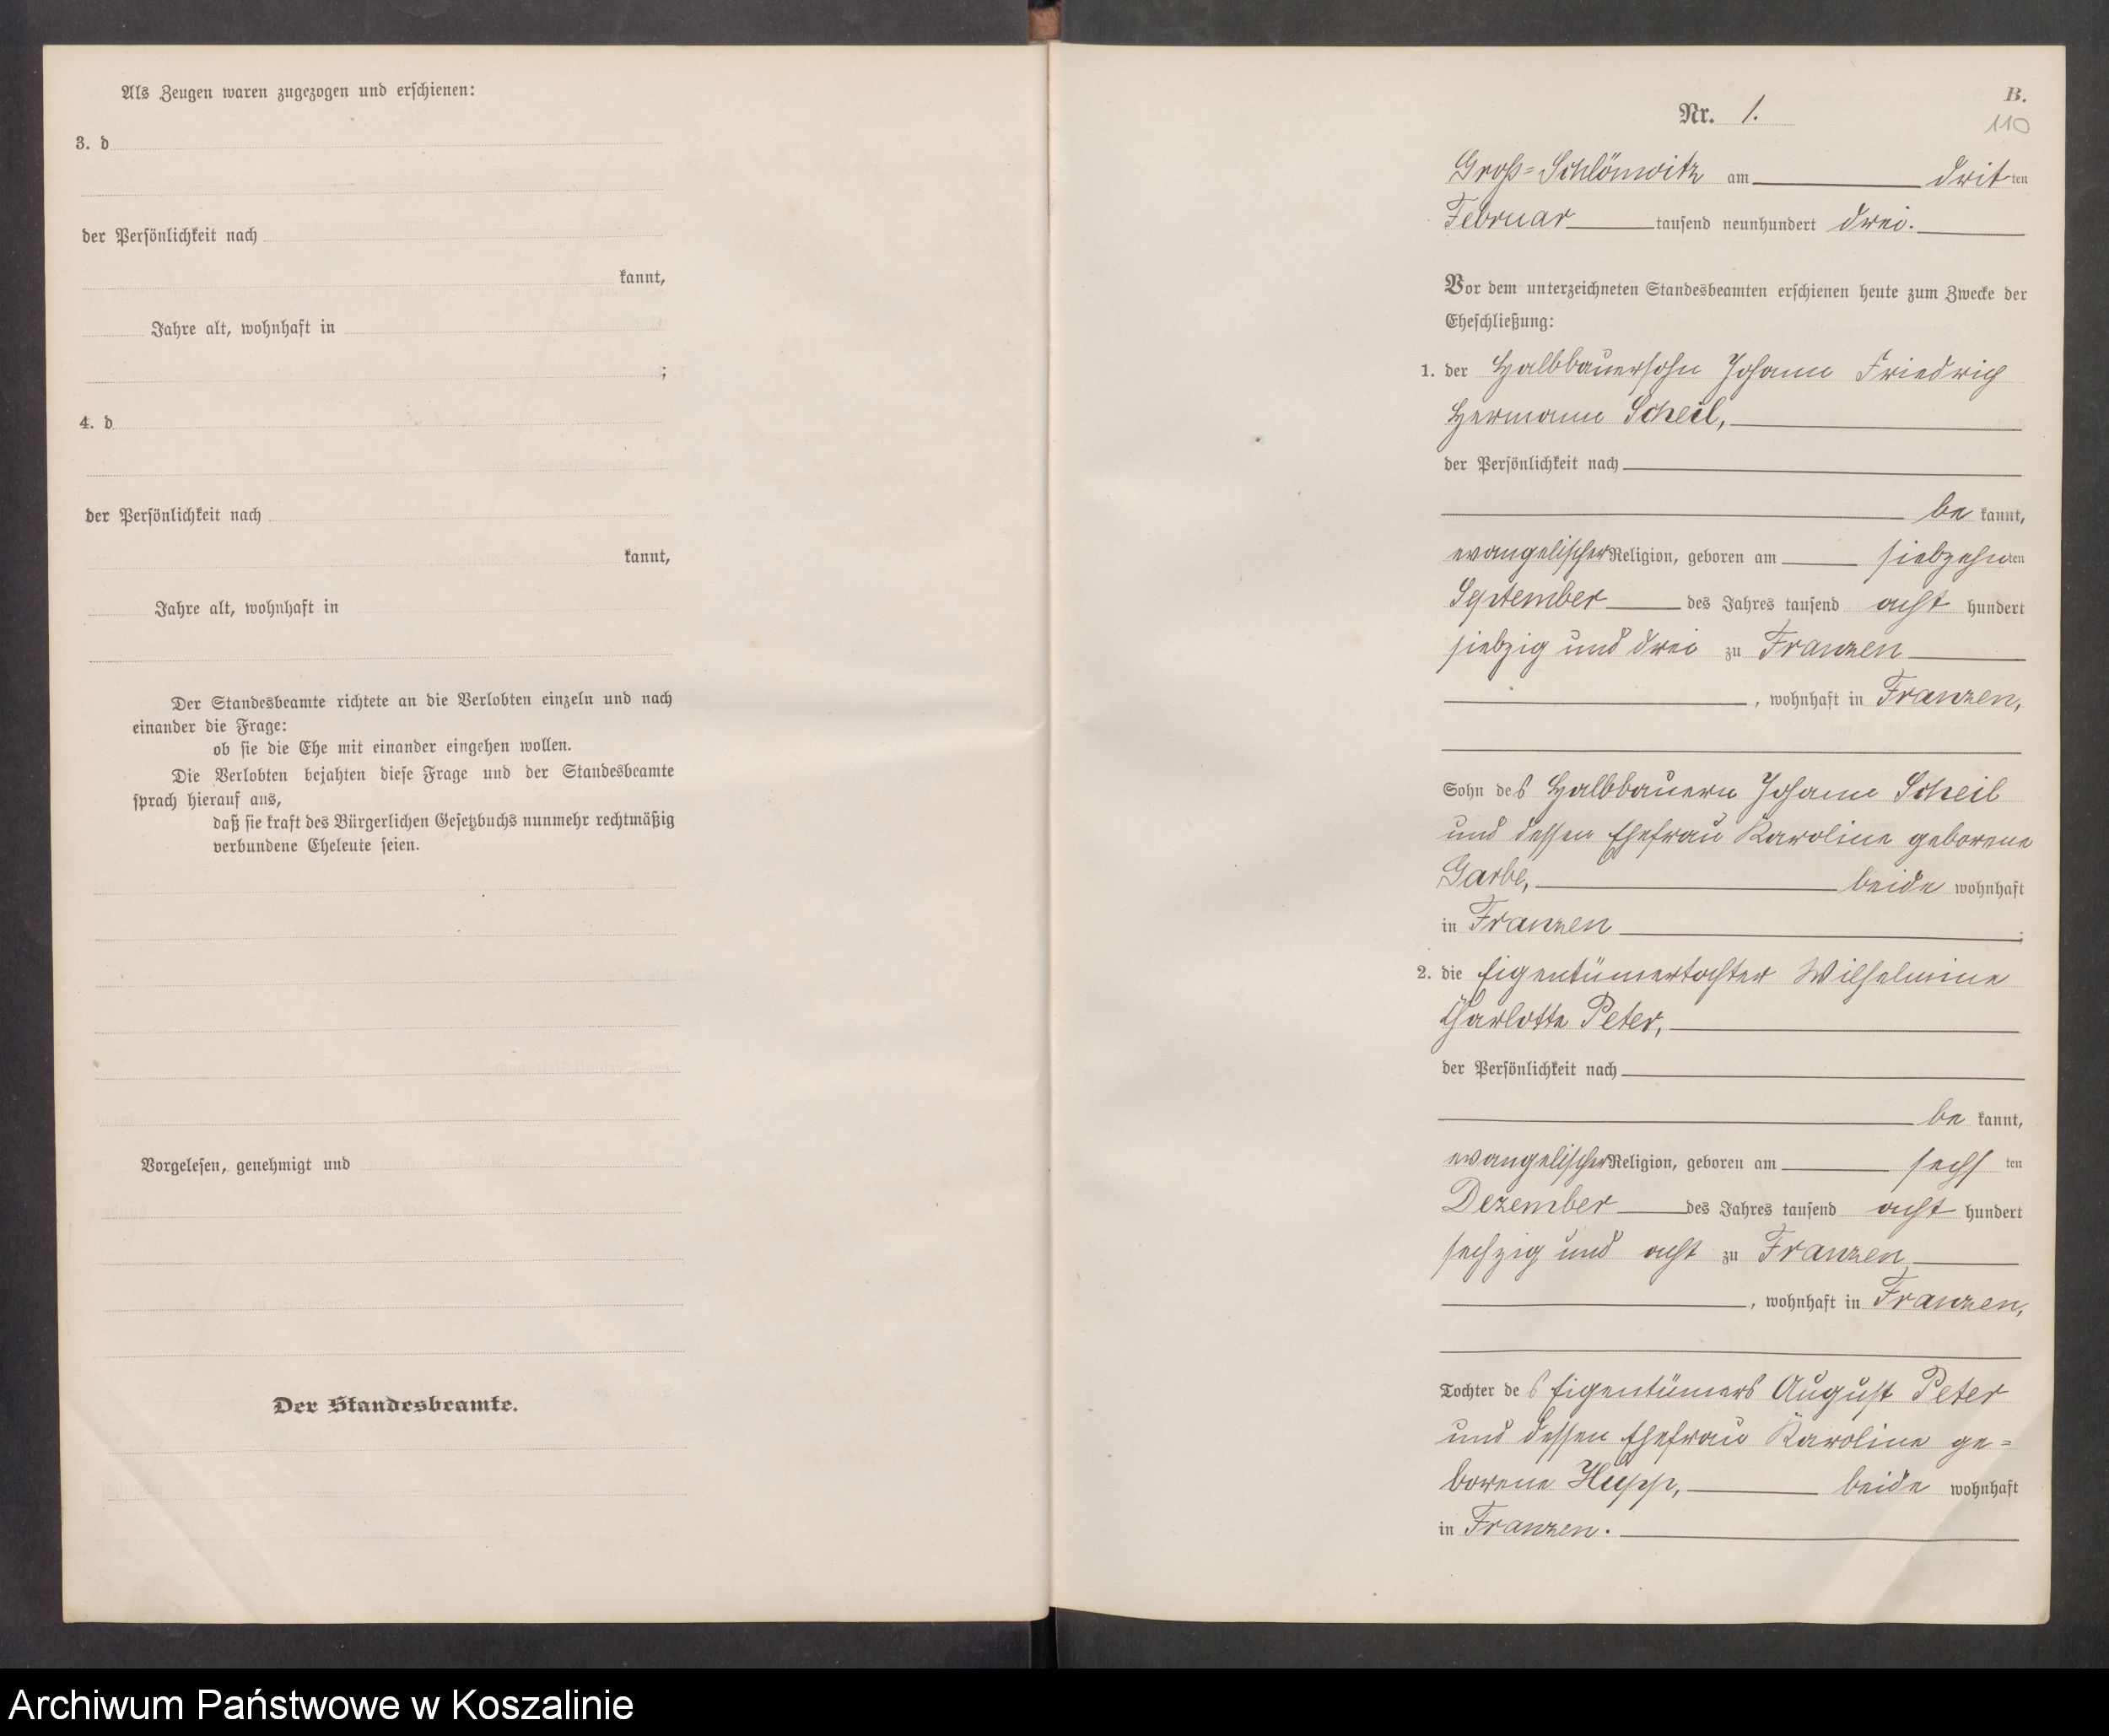 Als Zeugen waren zugezogen und erschienen:
3. d
der Persönlichkeit nach
kannt,
Jahre alt, wohnhaft in
;
4. d
der Persönlichkeit nach
kannt,
Jahre alt, wohnhaft in
Der Standesbeamte richtete an die Verlobten einzeln und nach
einander die Frage:
ob sie die Ehe mit einander eingehen wollen.
Die Verlobten bejahten diese Frage und der Standesbeamte
sprach hierauf aus,
daß sie kraft des Bürgerlichen Gesetzbuchs nunmehr rechtmäßig
verbundene Eheleute seien.
Vorgelesen, genehmigt und
Der Standesbeamte.
B.
Nr. 1.
110
Groß-Schlönwitz am dritten
Februar tausend neunhundert drei.
Vor dem unterzeichneten Standesbeamten erschienen heute zum Zwecke der
Eheschließung:
1. der Halbbauersohn Johann Friedrich
Hermann Scheil,
der Persönlichkeit nach
be kannt,
evangelischer Religion, geboren am siebzehnten
September des Jahres tausend acht hundert
siebzig und drei zu Franzen
, wohnhaft in Franzen,
Sohn des Halbbauern Johann Scheil
und dessen Ehefrau Karoline geborene
Garbe, beide wohnhaft
in Franzen.
2. die Eigentümertochter Wilhelmine
Charlotte Peter,
der Persönlichkeit nach
be kannt,
evangelischer Religion, geboren am sechs ten
Dezember des Jahres tausend acht hundert
sechzig und acht zu Franzen
, wohnhaft in Franzen,
Tochter des Eigentümers August Peter
und dessen Ehefrau Karoline ge=
borene Hupp, beide wohnhaft
in Franzen.
Archiwum Państwowe w Koszalinie